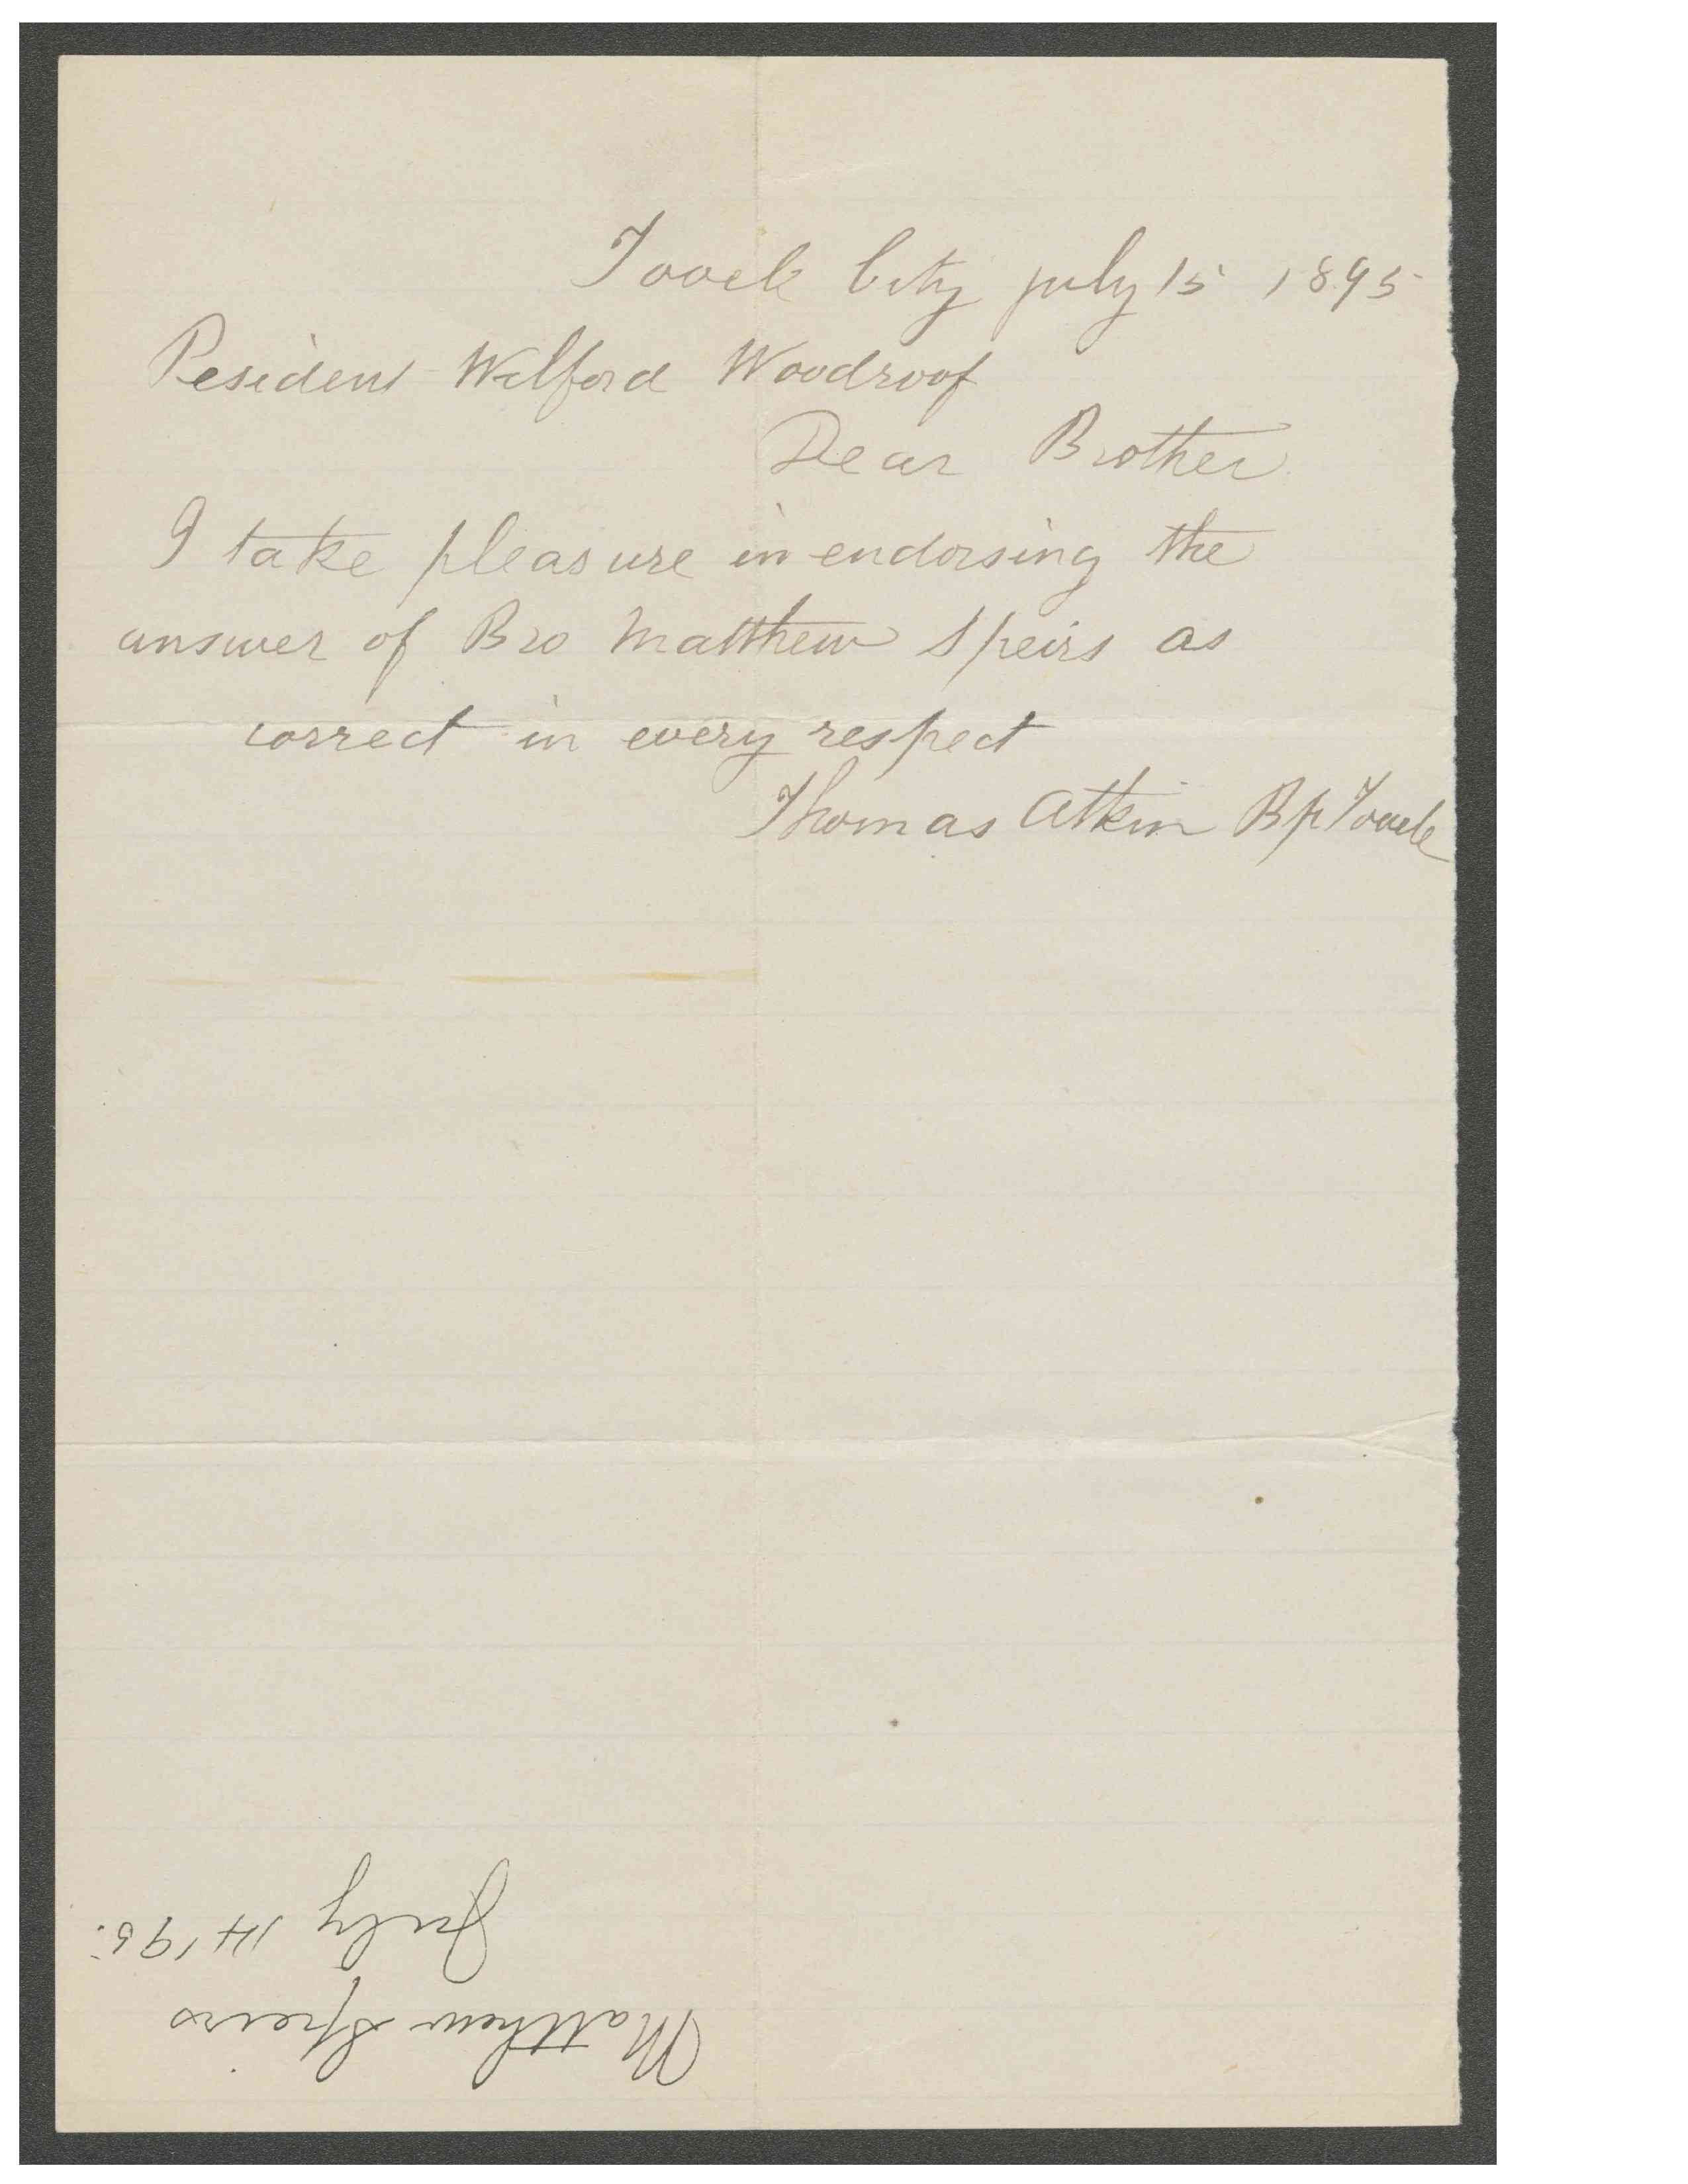 Tooele City july 15 1895
Pesident Wilford Woodroof
Dear Brother
I take pleasure in endorsing the
answer of Bro Matthew Speirs as
correct in every respect
Thomas Atkin Bp Tooele
Matthew Speirs
July 14 '95.